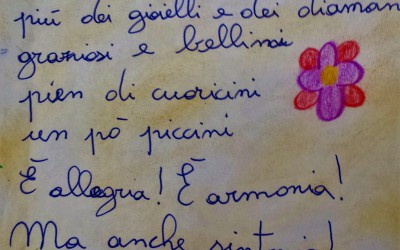 più dei gioielli e dei diaman
graziosi e bellini
pien di cuoricini
un pò piccini
È allegria! È armonia!
Ma anche